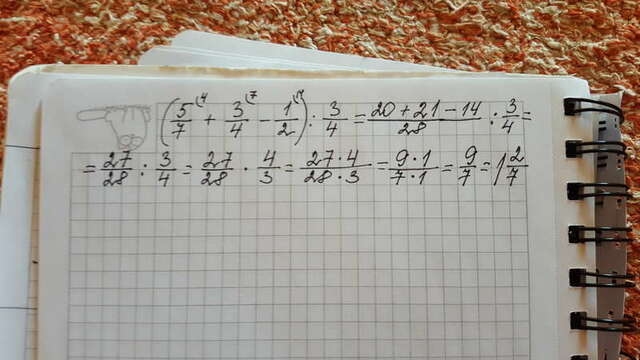 (5/7 + 3/4 - 1/2) : 3/4 = (20 + 21 - 14)/28 : 3/4 =
= 27/28 : 3/4 = 27/28 · 4/3 = (27 · 4)/(28 · 3) = (9 · 1)/(7 · 1) = 9/7 = 1 2/7